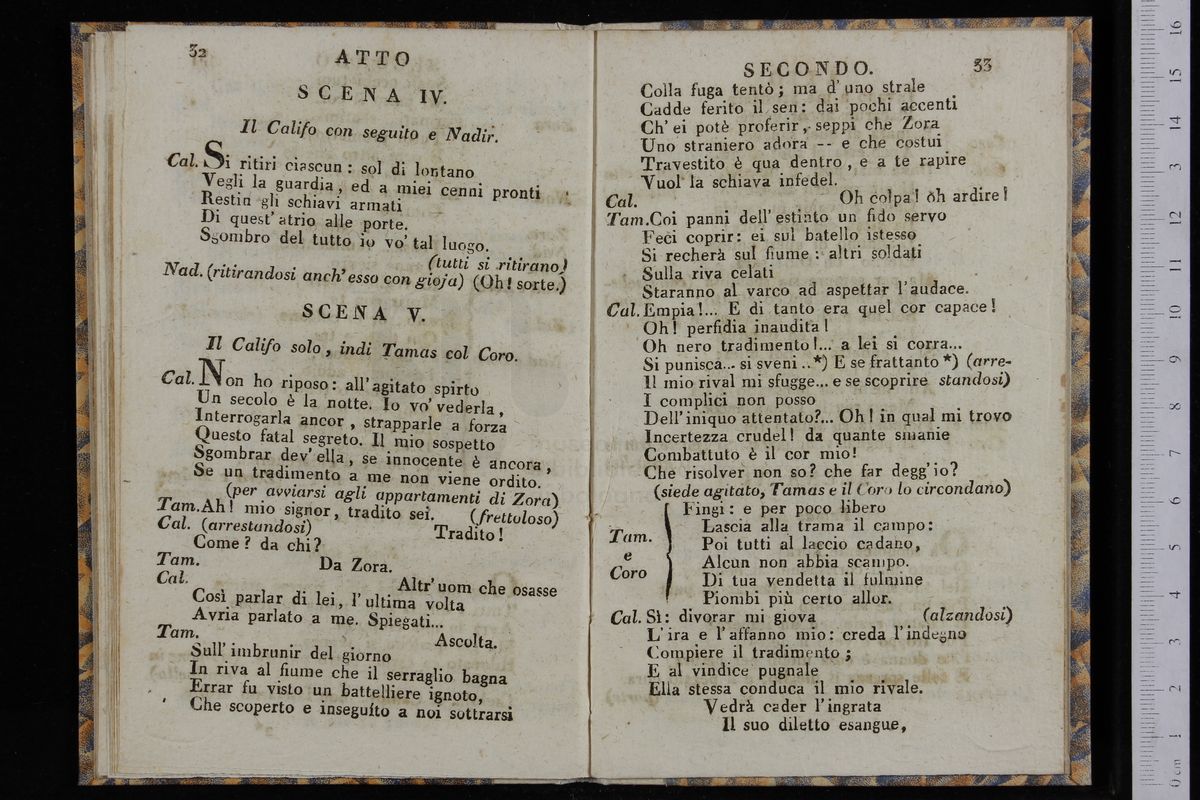 32
ATTO
SCENA IV.
Il Califo con seguito e Nadir.
Cal. Si ritiri ciascun: sol di lontano
Vegli la guardia, ed a miei cenni pronti
Restin gli schiavi armati
Di quest' atrio alle porte.
Sgombro del tutto io vo' tal luogo.
(tutti si ritirano)
Nad. (ritirandosi anch' esso con gioja) (Oh! sorte.)
SCENA V.
Il Califo solo, indi Tamas col Coro.
Cal. Non ho riposo: all' agitato spirto
Un secolo è la notte. Io vo' vederla,
Interrogarla ancor, strapparle a forza
Questo fatal segreto. Il mio sospetto
Sgombrar dev' ella, se innocente è ancora,
Se un tradimento a me non viene ordito.
(per avviarsi agli appartamenti di Zora)
Tam. Ah! mio signor, tradito sei. (frettoloso)
Cal. (arrestandosi) Tradito!
Come? da chi?
Tam. Da Zora.
Cal. Altr' uom che osasse
Così parlar di lei, l' ultima volta
Avria parlato a me. Spiegati...
Tam. Ascolta.
Sull' imbrunir del giorno
In riva al fiume che il serraglio bagna
Errar fu visto un battelliere ignoto,
Che scoperto e inseguito a noi sottrarsi
SECONDO. 33
Colla fuga tentò; ma d' uno strale
Cadde ferito il sen: dai pochi accenti
Ch' ei potè proferir, seppi che Zora
Uno straniero adora -- e che costui
Travestito è qua dentro, e a te rapire
Vuol la schiava infedel.
Cal. Oh colpa! oh ardire!
Tam. Coi panni dell' estinto un fido servo
Feci coprir: ei sul batello istesso
Si recherà sul fiume: altri soldati
Sulla riva celati
Staranno al varco ad aspettar l' audace.
Cal. Empia!... E di tanto era quel cor capace!
Oh! perfidia inaudita!
Oh nero tradimento!... a lei si corra...
Si punisca... si sveni..*) E se frattanto *) (arre-
Il mio rival mi sfugge... e se scoprire standosi)
I complici non posso
Dell' iniquo attentato?... Oh! in qual mi trovo
Incertezza crudel! da quante smanie
Combattuto è il cor mio!
Che risolver non so? che far degg' io?
(siede agitato, Tamas e il Coro lo circondano)
Tam. e Coro { Fingi: e per poco libero
Lascia alla trama il campo:
Poi tutti al laccio cadano,
Alcun non abbia scampo.
Di tua vendetta il fulmine
Piombi più certo allor.
Cal. Sì: divorar mi giova (alzandosi)
L' ira e l' affanno mio: creda l' indegno
Compiere il tradimento;
E al vindice pugnale
Ella stessa conduca il mio rivale.
Vedrà cader l' ingrata
Il suo diletto esangue,
16
15
14
13
12
11
10
9
8
7
6
5
4
3
2
1
0 cm